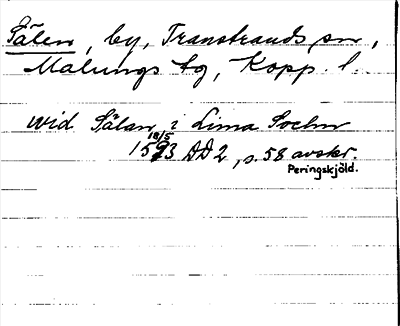 Sälen, by, Transtrands sn,
Malungs tg, Kopp. l.
wid Sälan i Lima Sochn
18/5
1593 DD2, s. 58 avskr.
Peringskjöld.